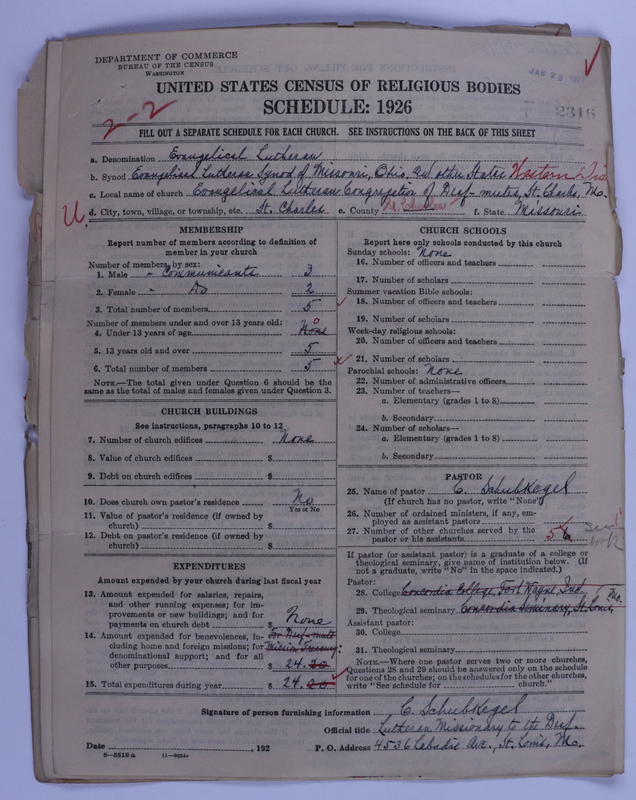 DEPARTMENT OF COMMERCE
BUREAU OF THE CENSUS
WASHINGTON
JAN 28 1927
UNITED STATES CENSUS OF RELIGIOUS BODIES
SCHEDULE: 1926
2316
2-2
FILL OUT A SEPARATE SCHEDULE FOR EACH CHURCH. SEE INSTRUCTIONS ON THE BACK OF THIS SHEET
a. Denomination Evangelical Lutheran
b. Synod Evangelical Lutheran Synod of Missouri, Ohio, and other States Western Dis
c. Local name of church Evangelical Lutheran Congregation of Deaf-mutes, St. Charles, Mo.
d. City, town, village, or township, etc. St. Charles e. County St. Charles f. State Missouri
MEMBERSHIP
Report number of members according to definition of member in your church
Number of members by sex:
1. Male - Communicants 3
2. Female - Do 2
3. Total number of members 5
Number of members under and over 13 years old:
4. Under 13 years of age None 0
5. 13 years old and over 5
6. Total number of members 5
NOTE.—The total given under Question 6 should be the same as the total of males and females given under Question 3.
CHURCH BUILDINGS
See instructions, paragraphs 10 to 12
7. Number of church edifices None
8. Value of church edifices $
9. Debt on church edifices $
10. Does church own pastor's residence No
Yes or No
11. Value of pastor's residence (if owned by church) $
12. Debt on pastor's residence (if owned by church) $
EXPENDITURES
Amount expended by your church during last fiscal year
13. Amount expended for salaries, repairs, and other running expenses; for improvements or new buildings; and for payments on church debt $ None
14. Amount expended for benevolences, including home and foreign missions; for denominational support; and for all other purposes For Deaf-mute Mission Treasury: $ 24.20
15. Total expenditures during year $ 24.20
CHURCH SCHOOLS
Report here only schools conducted by this church
Sunday schools: None
16. Number of officers and teachers
17. Number of scholars
Summer vacation Bible schools:
18. Number of officers and teachers
19. Number of scholars
Week-day religious schools:
20. Number of officers and teachers
21. Number of scholars
Parochial schools: None
22. Number of administrative officers
23. Number of teachers—
a. Elementary (grades 1 to 8)
b. Secondary
24. Number of scholars—
a. Elementary (grades 1 to 8)
b. Secondary
PASTOR
25. Name of pastor C. Schubkegel
(If church has no pastor, write "None")
26. Number of ordained ministers, if any, employed as assistant pastors
27. Number of other churches served by the pastor or his assistants 5 6
If pastor (or assistant pastor) is a graduate of a college or theological seminary, give name of institution below. (If not a graduate, write "No" in the space indicated.)
Pastor:
28. College Concordia College, Fort Wayne, Ind.
29. Theological seminary Concordia Seminary, St. Louis, Mo.
Assistant pastor:
30. College
31. Theological seminary
NOTE.—Where one pastor serves two or more churches, Questions 28 and 29 should be answered only on the schedule for one of the churches; on the schedules for the other churches, write "See schedule for church."
Signature of person furnishing information C. Schubkegel
Official title Lutheran Missionary to the Deaf.
Date , 192 P. O. Address 4536 Labadie Ave., St. Louis, Mo.
8—5518a 11—9024a